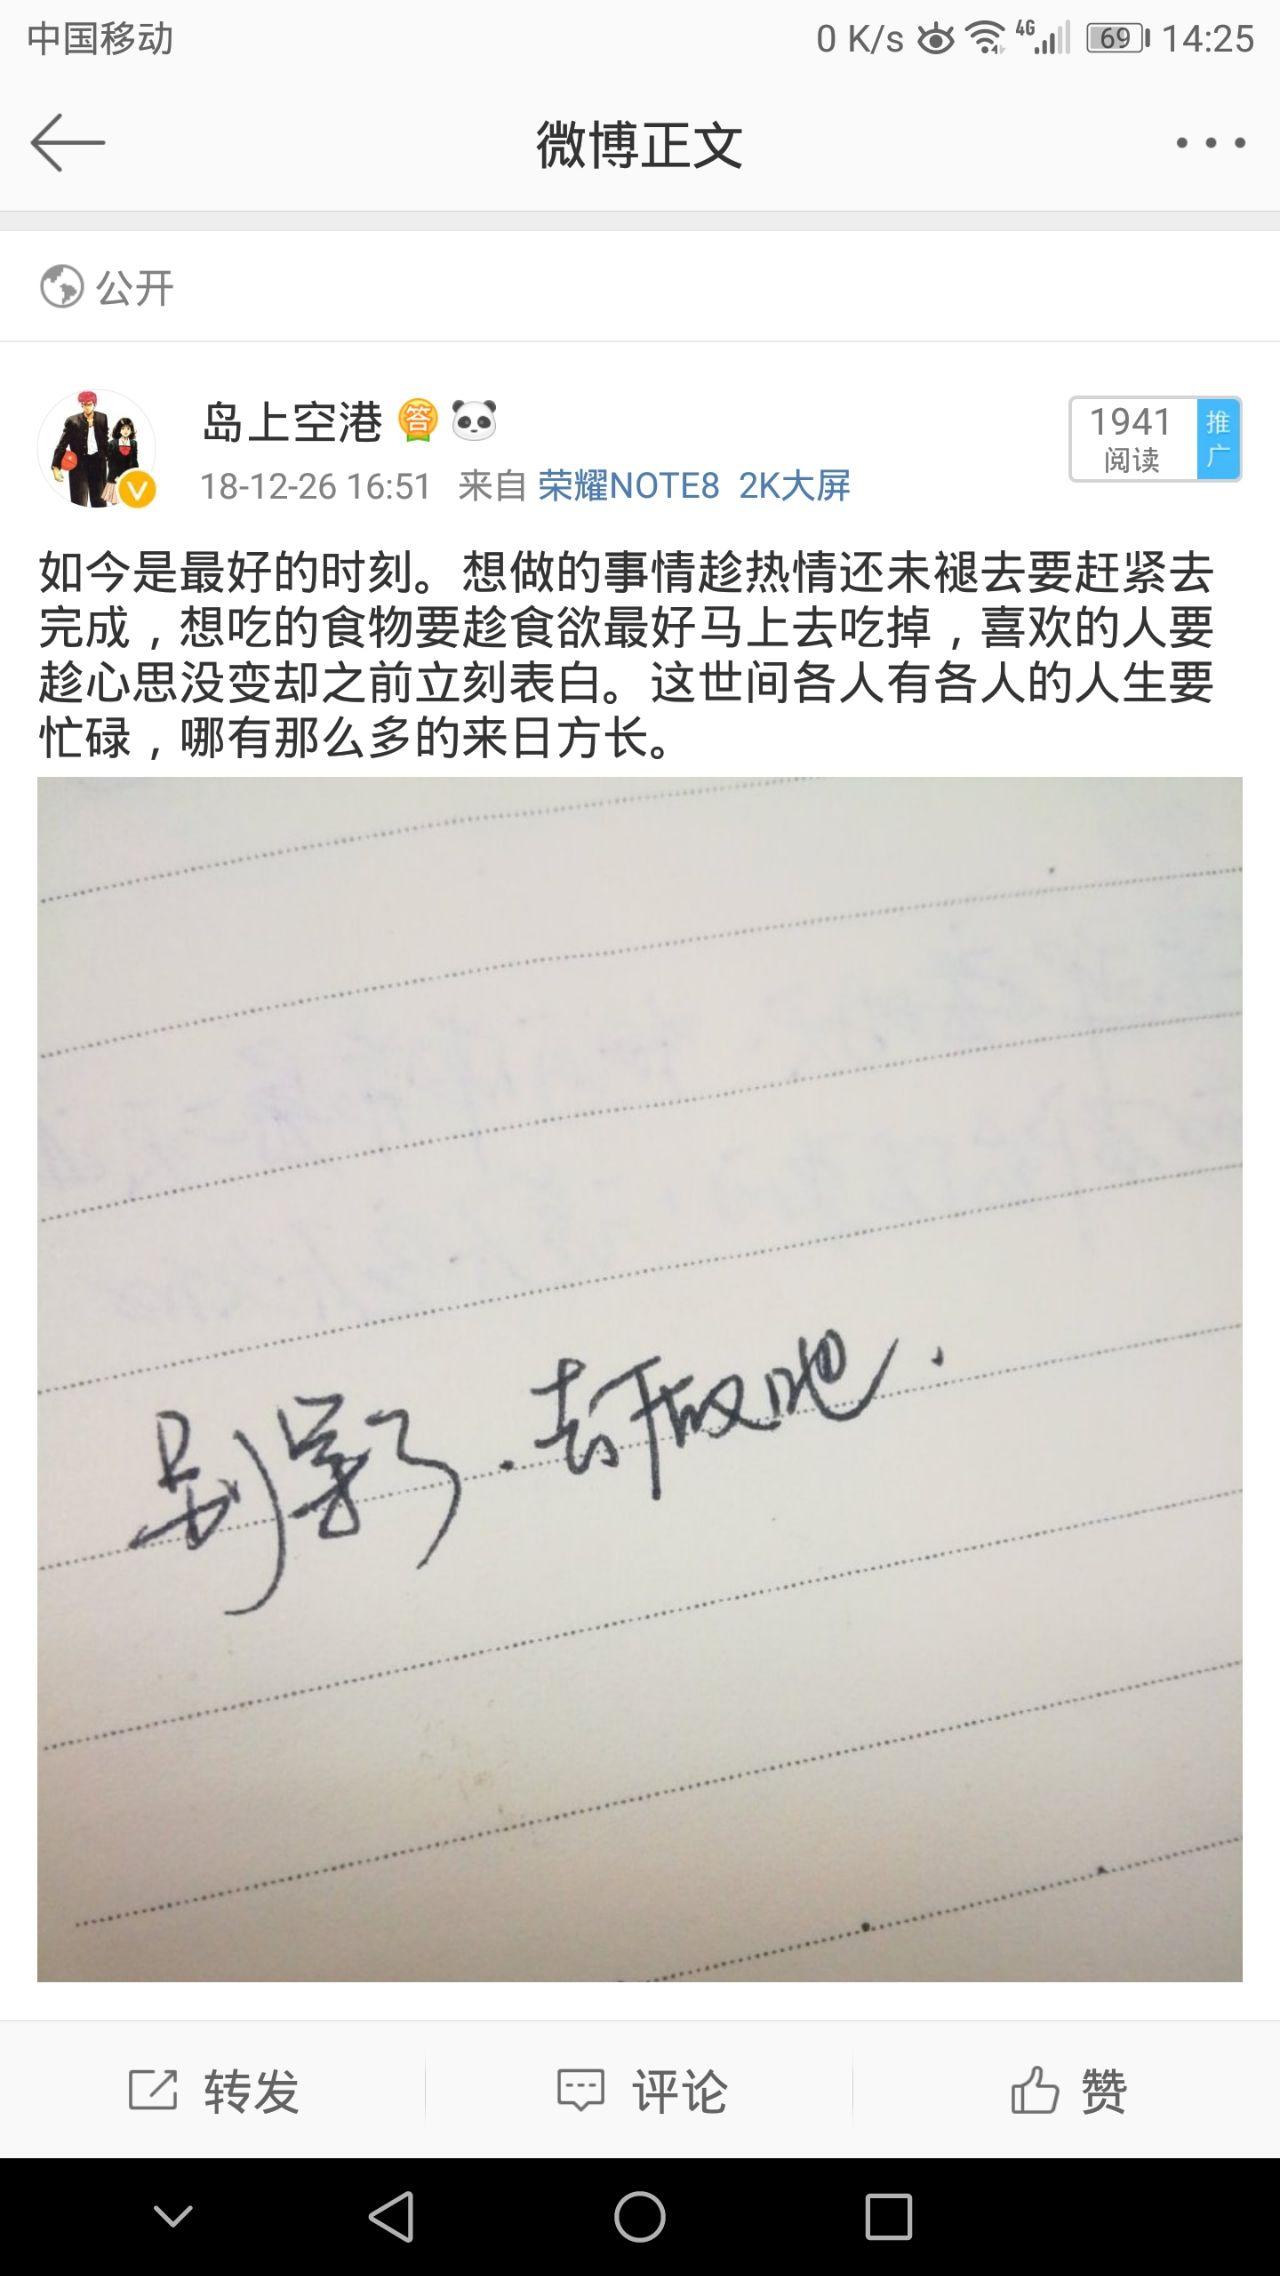 中国移动 0 K/s 4G 69 14:25
微博正文
公开
岛上空港 答
V
18-12-26 16:51 来自 荣耀NOTE8 2K大屏
1941 阅读 推广
如今是最好的时刻。想做的事情趁热情还未褪去要赶紧去
完成，想吃的食物要趁食欲最好马上去吃掉，喜欢的人要
趁心思没变却之前立刻表白。这世间各人有各人的人生要
忙碌，哪有那么多的来日方长。
别等了.去做吧.
转发 评论 赞